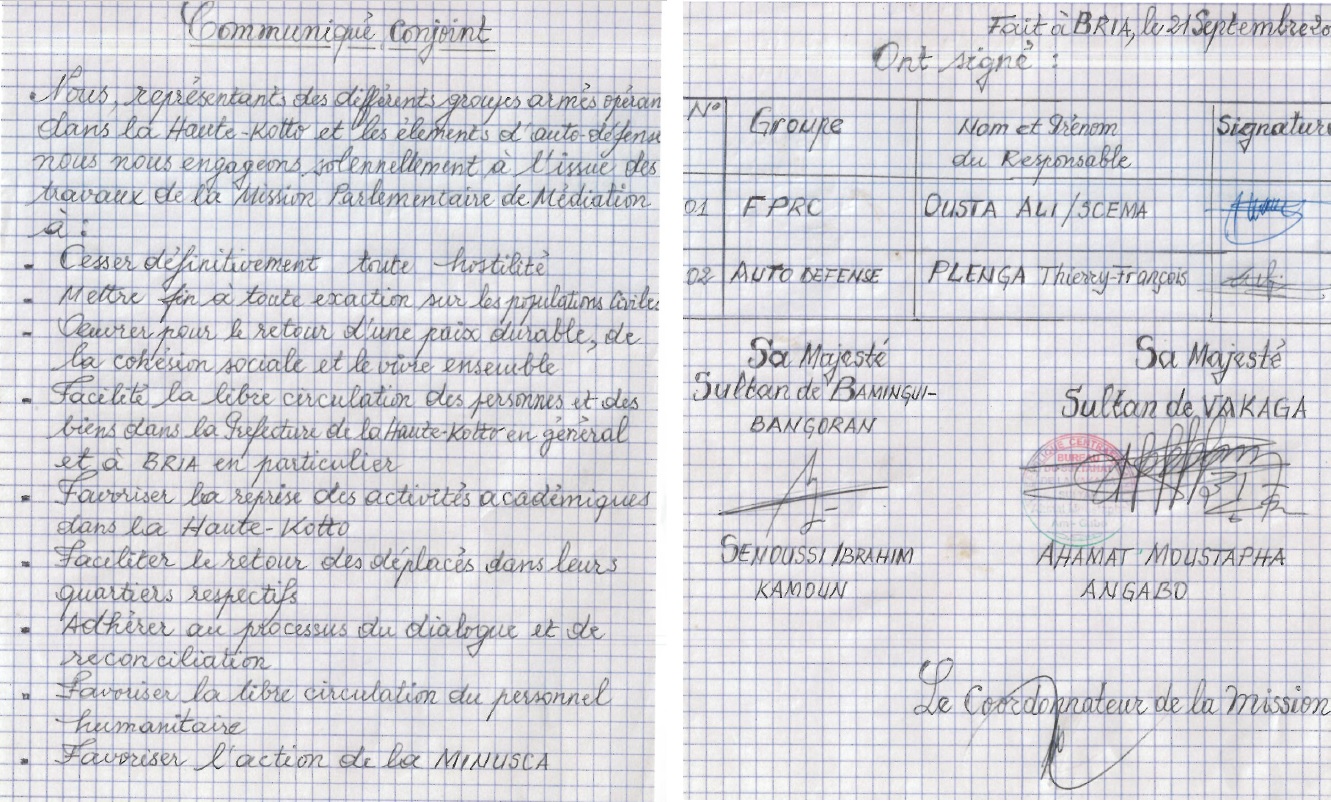 Communiqué conjoint
. Nous, représentants des différents groupes armés opéran
dans la Haute-Kotto et les élements d'auto-défense
nous nous engageons solennellement à l'issue des
travaux de la Mission Parlementaire de Médiation
à :
- Cesser définitivement toute hostilité
- Mettre fin à toute exaction sur les populations Civiles
- Œuvrer pour le retour d'une paix durable, de
la cohésion sociale et le vivre ensemble
- Facilité la libre circulation des personnes et des
biens dans la Préfecture de la Haute-Kotto en général
et à BRIA en particulier
- Favoriser la reprise des activités académiques
dans la Haute-Kotto
- Faciliter le retour des déplacés dans leurs
quartiers respectifs
- Adhérer au processus du dialogue et de
reconciliation
- Favoriser la libre circulation du personnel
humanitaire
- Favoriser l'action de la MINUSCA
Fait à BRIA, le 21 Septembre 20
Ont signé :
N° Groupe Nom et Prénom du Responsable Signature
01 FPRC OUSTA ALI / SCEMA
02 AUTO DEFENSE PLENGA Thierry-François
Sa Majesté
Sultan de BAMINGUI-
BANGORAN
SENOUSSI IBRAHIM
KAMOUN
Sa Majesté
Sultan de VAKAGA
BUREAU
AHAMAT MOUSTAPHA
ANGABO
Le Coordonnateur de la Mission